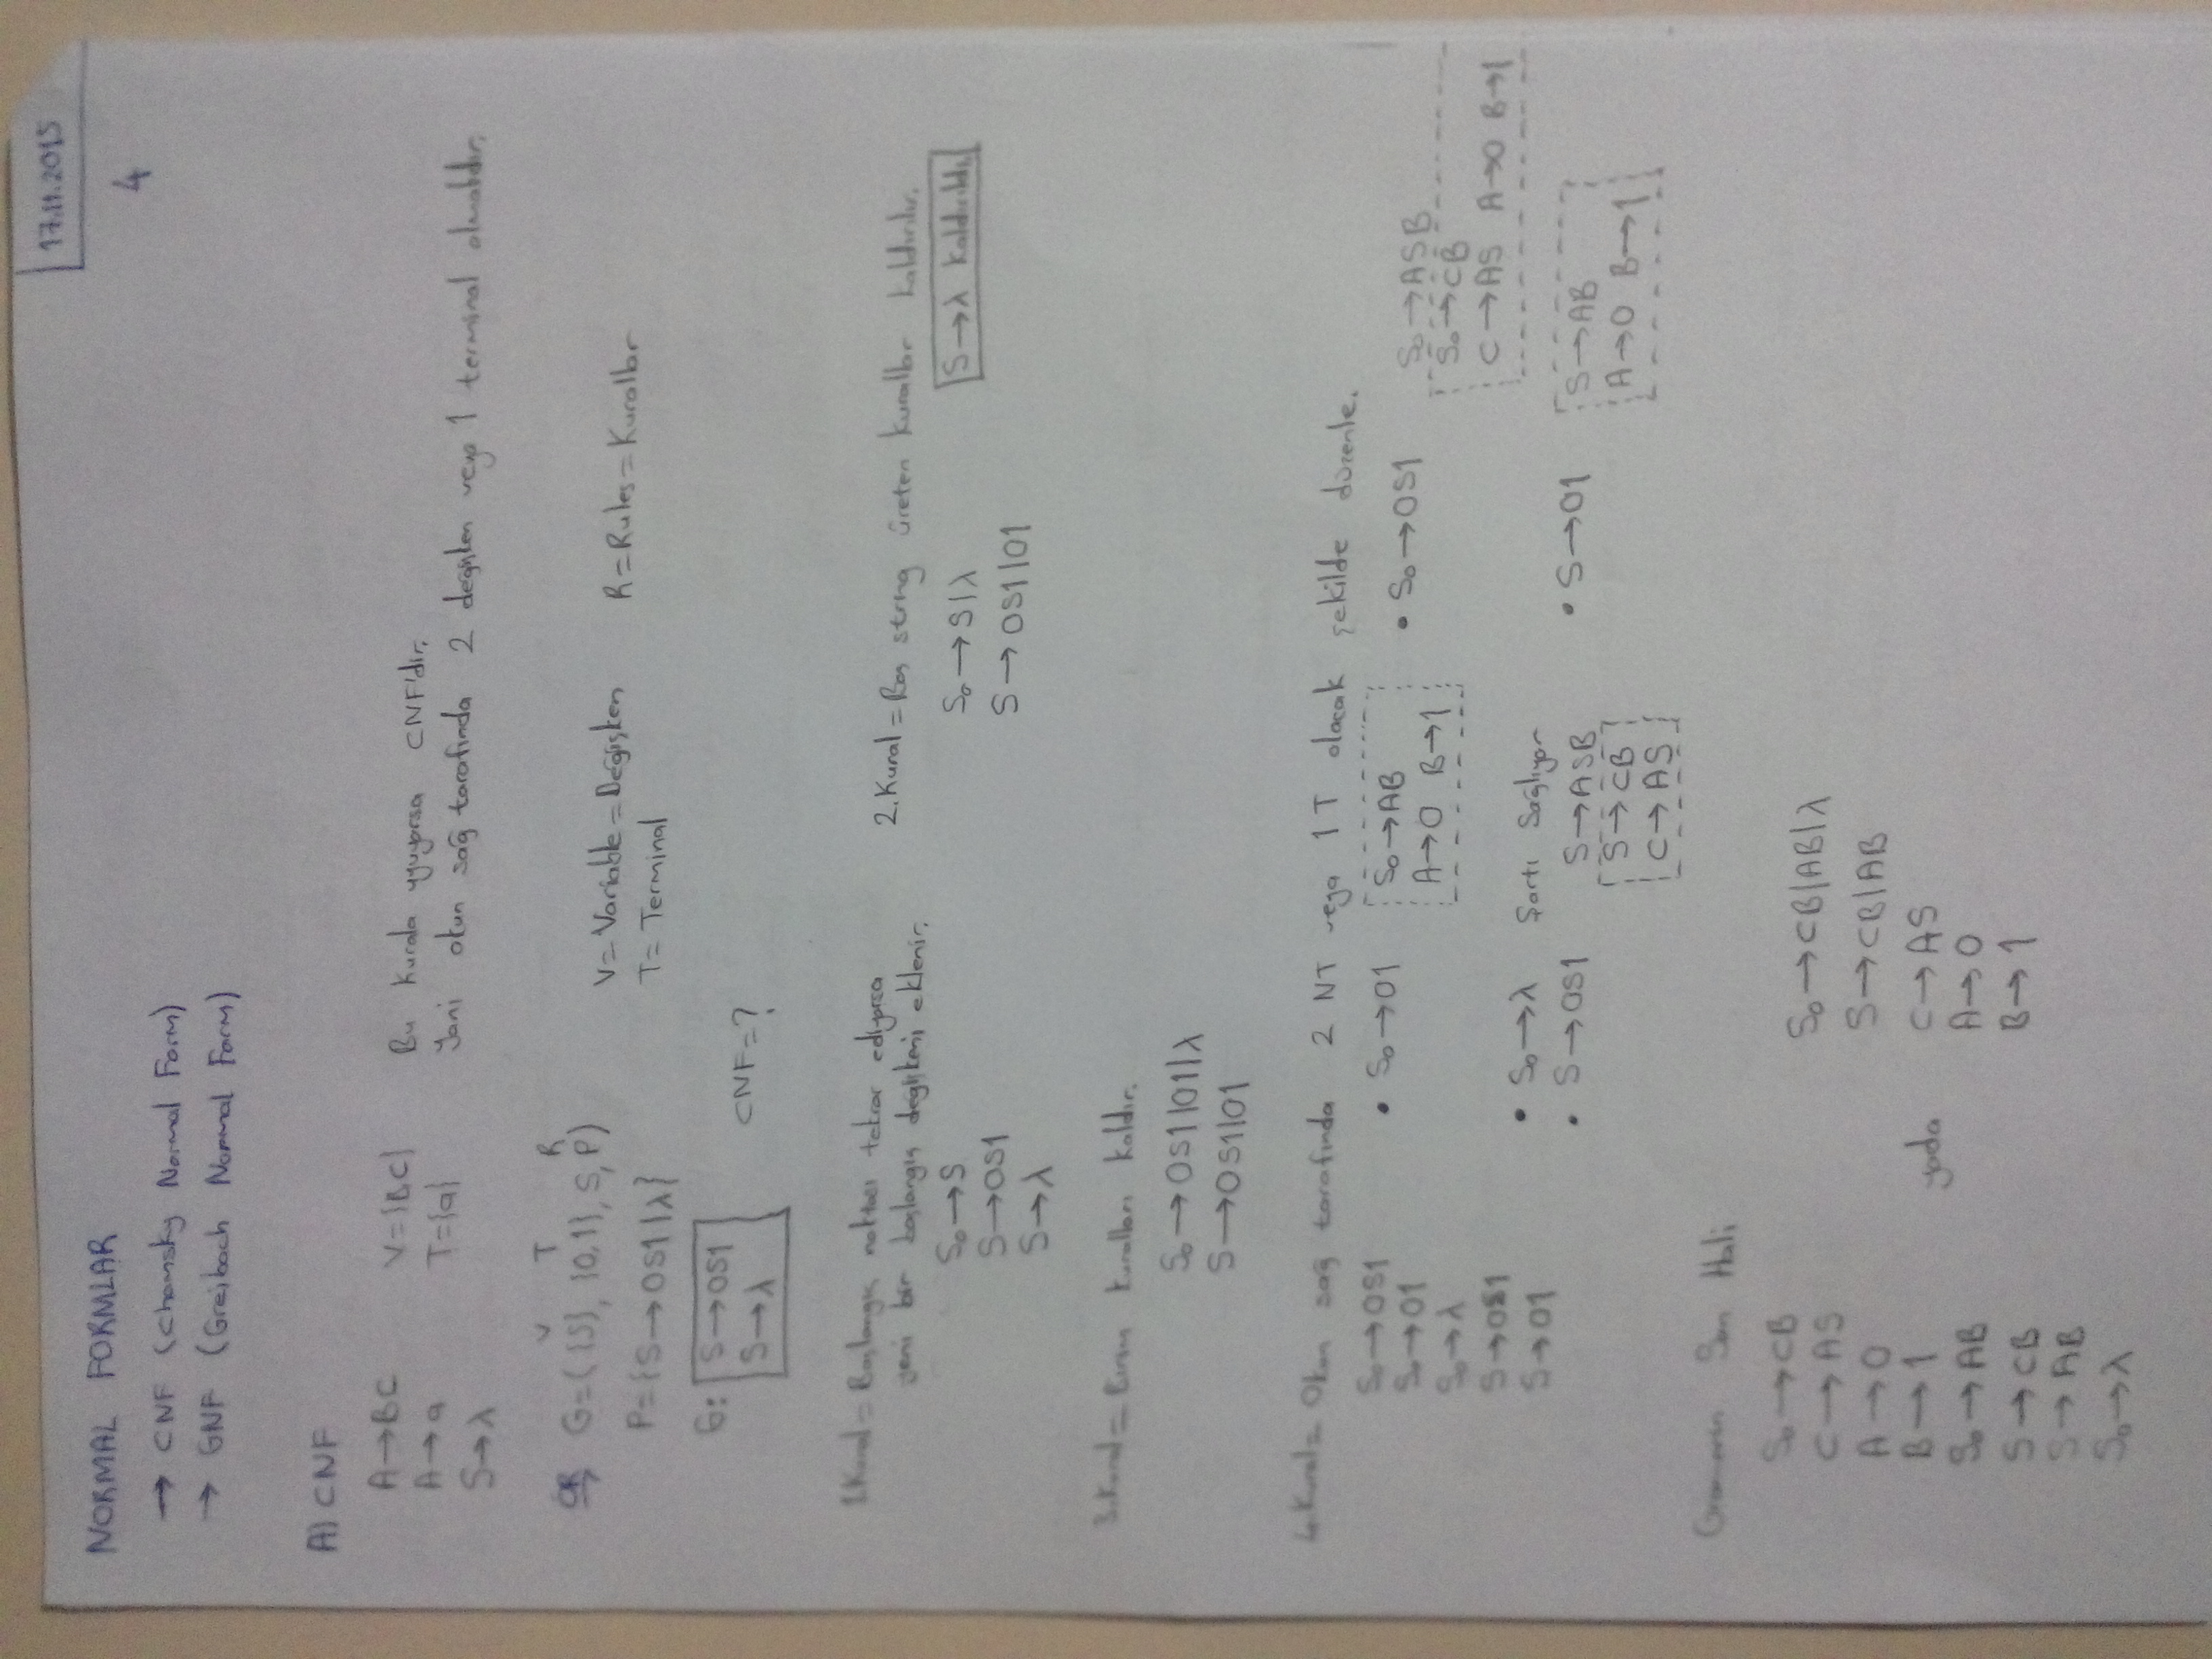 17.11.2015
4
NORMAL FORMLAR
→ CNF (Chomsky Normal Form)
→ GNF (Greibach Normal Form)
A) CNF
A→BC
A→a
S→λ
V={BC}
T={a}
Bu kurala uyuyorsa CNF'dir.
Yani okun sağ tarafında 2 değişken veya 1 terminal olmalıdır.
V T R
ÖR G=({S}, {0,1}, S, P)
P={S→0S1|λ}
G: S→0S1
S→λ
CNF=?
V=Variable=Değişken
T=Terminal
R=Rules=Kurallar
1.Kural= Başlangıç noktası tekrar ediyorsa
yeni bir başlangıç değişkeni eklenir.
S₀→S
S→0S1
S→λ
2.Kural= Boş string üreten kurallar kaldırılır.
S₀→S|λ
S→0S1|01
S→λ kaldırıldı
3.Kural= Birim kuralları kaldır.
S₀→0S1|01|λ
S→0S1|01
4.Kural= Okun sağ tarafında 2 NT veya 1 T olacak şekilde düzenle.
S₀→0S1
S₀→01
S₀→λ
S→0S1
S→01
• S₀→01
S₀→AB
A→0 B→1
• S₀→0S1
S₀→ASB
S₀→CB
C→AS A→0 B→1
• S₀→λ Şartı Sağlıyor
• S→0S1
S→ASB
S→CB
C→AS
• S→01
S→AB
A→0 B→1
Gramerin Son Hali
S₀→CB
C→AS
A→0
B→1
S₀→AB
S→CB
S→AB
S₀→λ
yada
S₀→CB|AB|λ
S→CB|AB
C→AS
A→0
B→1